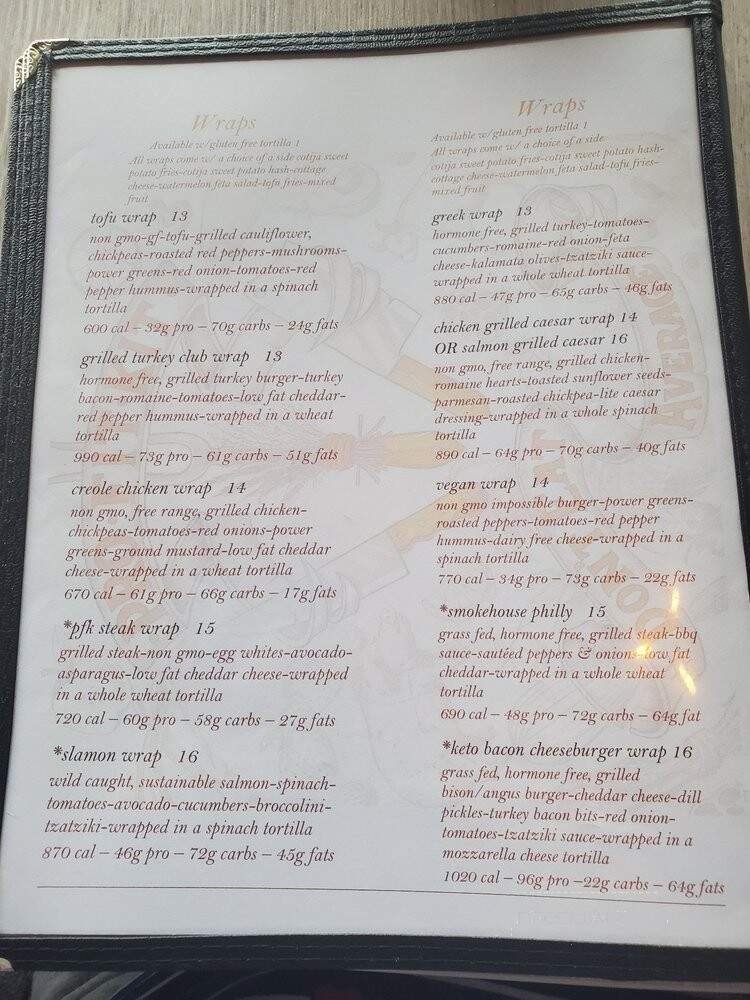 Wraps
Available w/gluten free tortilla 1
All wraps come w/ a choice of a side cotija sweet
potato fries-cotija sweet potato hash-cottage
cheese-watermelon feta salad-tofu fries-mixed
fruit
tofu wrap 13
non gmo-gf-tofu-grilled cauliflower,
chickpeas-roasted red peppers-mushrooms-
power greens-red onion-tomatoes-red
pepper hummus-wrapped in a spinach
tortilla
600 cal – 32g pro – 70g carbs – 24g fats
grilled turkey club wrap 13
hormone free, grilled turkey burger-turkey
bacon-romaine-tomatoes-low fat cheddar-
red pepper hummus-wrapped in a wheat
tortilla
990 cal – 73g pro – 61g carbs – 51g fats
creole chicken wrap 14
non gmo, free range, grilled chicken-
chickpeas-tomatoes-red onions-power
greens-ground mustard-low fat cheddar
cheese-wrapped in a wheat tortilla
670 cal – 61g pro – 66g carbs – 17g fats
*pfk steak wrap 15
grilled steak-non gmo-egg whites-avocado-
asparagus-low fat cheddar cheese-wrapped
in a whole wheat tortilla
720 cal – 60g pro – 58g carbs – 27g fats
*slamon wrap 16
wild caught, sustainable salmon-spinach-
tomatoes-avocado-cucumbers-broccolini-
tzatziki-wrapped in a spinach tortilla
870 cal – 46g pro – 72g carbs – 45g fats
Wraps
Available w/gluten free tortilla 1
All wraps come w/ a choice of a side
cotija sweet potato fries-cotija sweet potato hash-
cottage cheese-watermelon feta salad-tofu fries-
mixed fruit
greek wrap 13
hormone free, grilled turkey-tomatoes-
cucumbers-romaine-red onion-feta
cheese-kalamata olives-tzatziki sauce-
wrapped in a whole wheat tortilla
880 cal – 47g pro – 65g carbs – 46g fats
chicken grilled caesar wrap 14
OR salmon grilled caesar 16
non gmo, free range, grilled chicken-
romaine hearts-toasted sunflower seeds-
parmesan-roasted chickpea-lite caesar
dressing-wrapped in a whole spinach
tortilla
890 cal – 64g pro – 70g carbs – 40g fats
vegan wrap 14
non gmo impossible burger-power greens-
roasted peppers-tomatoes-red pepper
hummus-dairy free cheese-wrapped in a
spinach tortilla
770 cal – 34g pro – 73g carbs – 22g fats
*smokehouse philly 15
grass fed, hormone free, grilled steak-bbq
sauce-sautéed peppers & onions-low fat
cheddar-wrapped in a whole wheat
tortilla
690 cal – 48g pro – 72g carbs – 64g fat
*keto bacon cheeseburger wrap 16
grass fed, hormone free, grilled
bison/angus burger-cheddar cheese-dill
pickles-turkey bacon bits-red onion-
tomatoes-tzatziki sauce-wrapped in a
mozzarella cheese tortilla
1020 cal – 96g pro –22g carbs – 64g fats